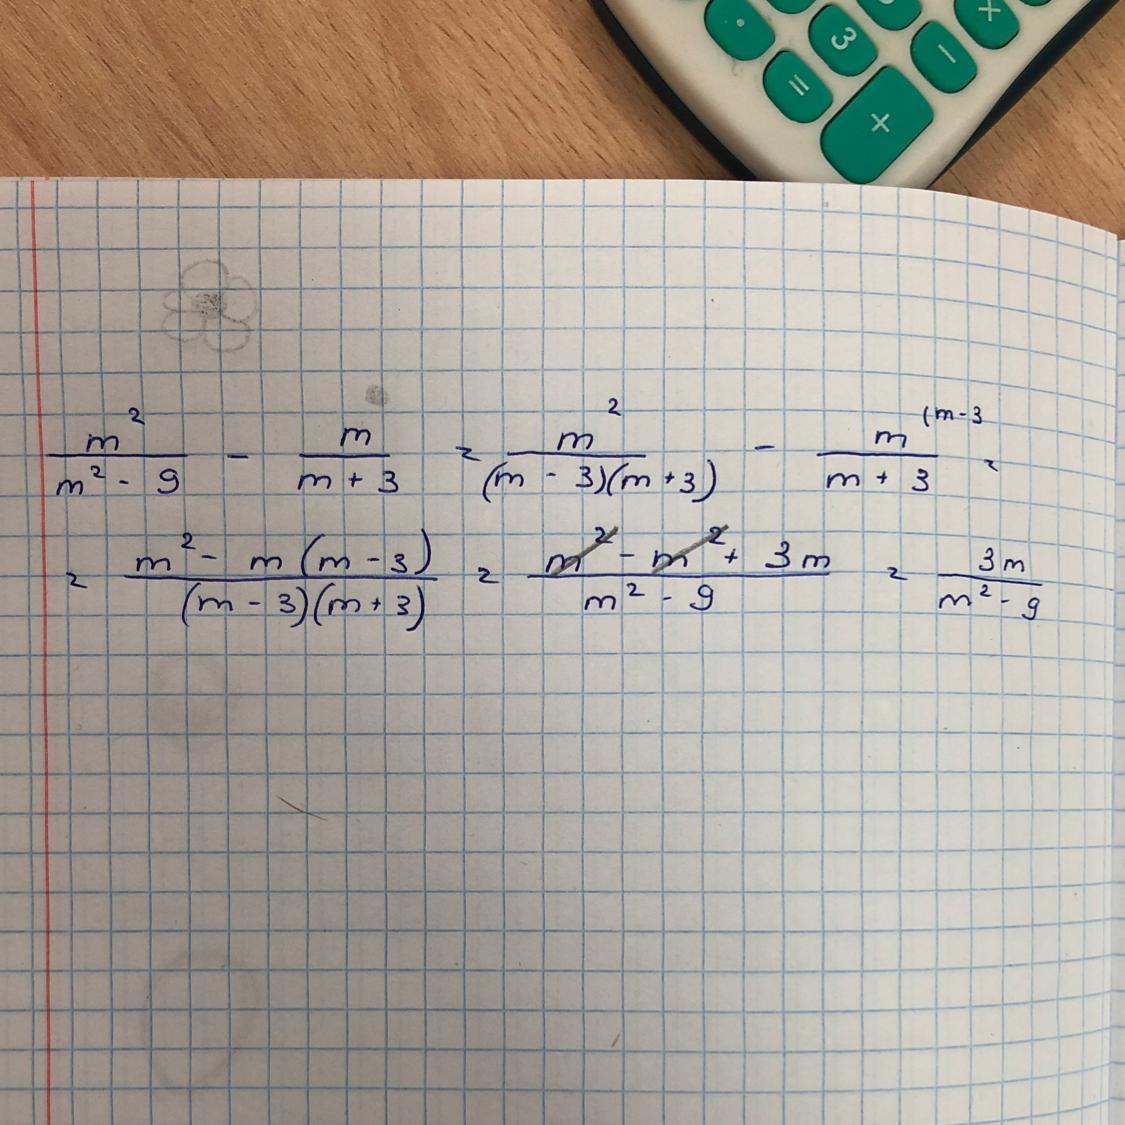 . 3 - ×
= +
m²/(m² - 9) - m/(m + 3) = m²/((m - 3)(m + 3)) - m/(m + 3) (m - 3 =
= (m² - m(m - 3))/((m - 3)(m + 3)) = (m² - m² + 3m)/(m² - 9) = 3m/(m² - 9)